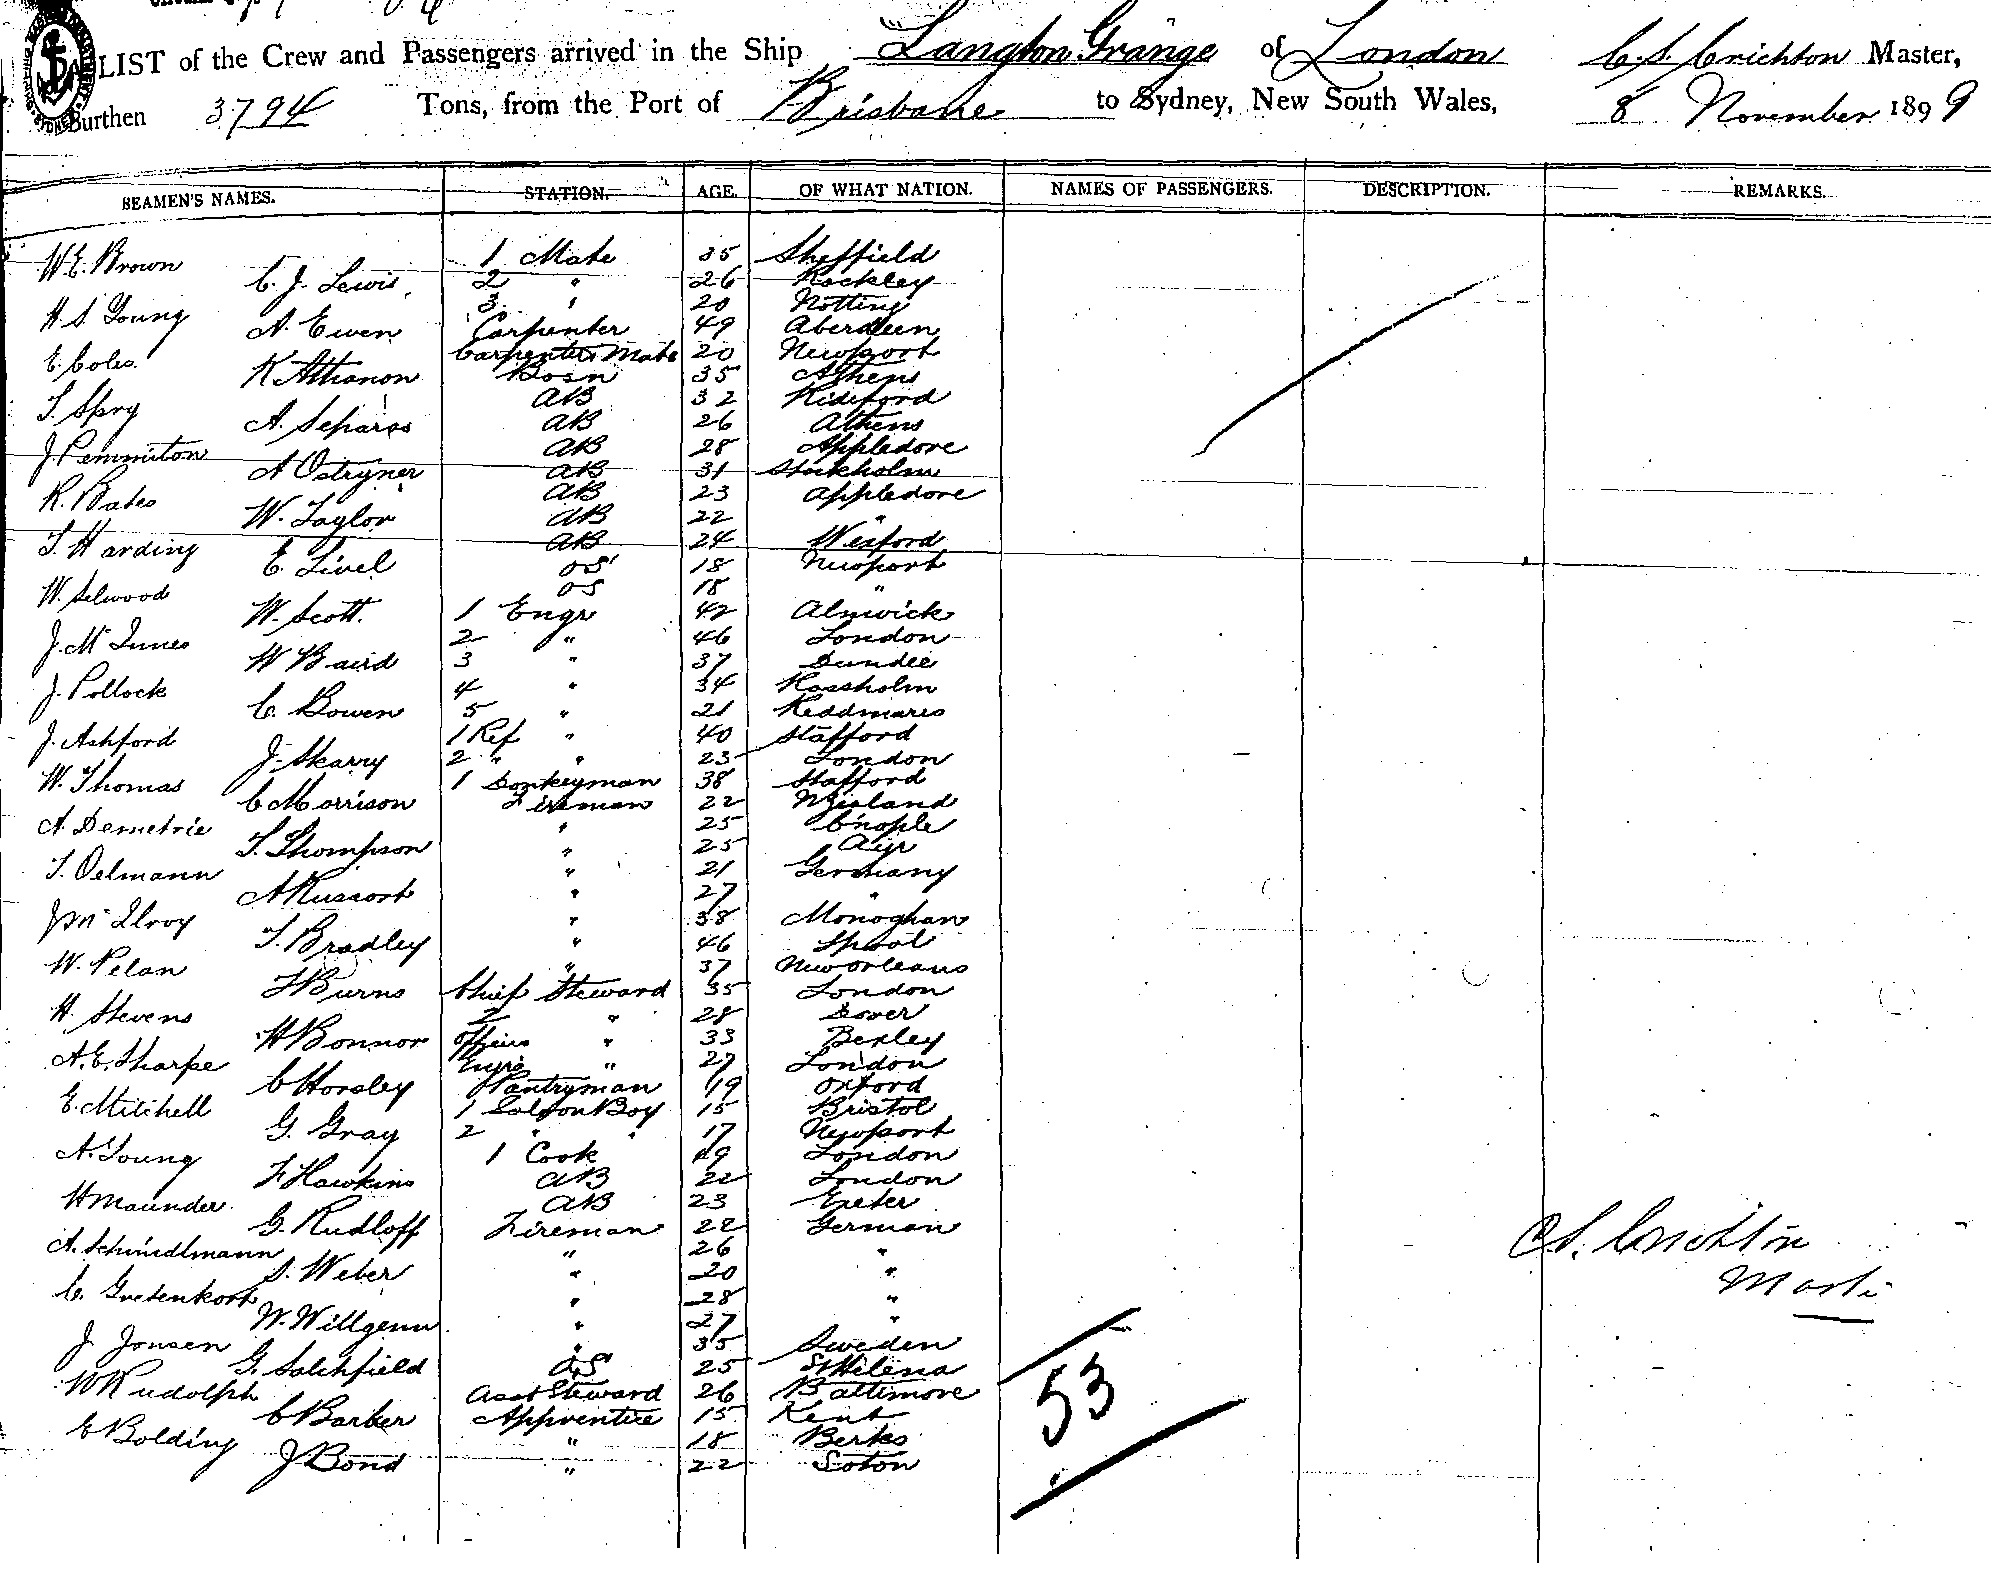 LIST of the Crew and Passengers arrived in the Ship Langton Grange of London C. S. Crichton Master,
Burthen 3794 Tons, from the Port of Brisbane to Sydney, New South Wales, 8 November 1899
SEAMEN'S NAMES. STATION. AGE. OF WHAT NATION. NAMES OF PASSENGERS. DESCRIPTION. REMARKS.
W. E. Brown 1 Mate 35 Sheffield
C. J. Lewis 2 " 26 Rockley
H. S. Young 3 " 20 Notting
A. Ewen Carpenter 49 Aberdeen
E. Coles Carpenters Mate 20 Newport
K Athanon Bosn 35 Athens
T. Spry AB 32 Bideford
A. Separos AB 26 Athens
J. Pemmiton AB 28 Appledore
A Ostryner AB 31 Stockholm
R. Bates AB 23 Appledore
W. Taylor AB 22 "
T. Harding AB 24 Wexford
E. Livel OS 18 Newport
W. Selwood OS 18 "
W. Scott. 1 Engr 42 Alnwick
J. McInnes 2 " 46 London
W Baird 3 " 37 Dundee
J. Pollock 4 " 34 Rossholm
C. Bowen 5 " 21 Reddmares
J. Ashford 1 Ref " 40 Stafford
J. Skarry 2 " " 23 London
W. Thomas 1 Donkeyman 38 Stafford
C Morrison Fireman 22 N Zealand
A. Demetrie " 25 C'nople
T. Thompson " 25 Ayr
T. Oelmann " 21 Germany
A Russort " 27 "
J McIlroy " 38 Monoghan
T. Bradley " 46 Lpool
W. Pelan " 37 New Orleans
J Burns Chief Steward 35 London
H. Stevens 2 " 28 Dover
H Bonnor Officers " 33 Bexley
A. E. Sharpe Engrs " 27 London
C Horsley Pantryman 19 Oxford
E. Mitchell 1 Saloon Boy 15 Bristol
G. Gray 2 " " 17 Newport
A. Young 1 Cook 29 London
F Hawkins AB 22 London
H Maunder AB 23 Exeter
G. Rudloff Fireman 22 German
A. Schindlmann " 26 "
S. Weber " 20 "
C. Gretenkort " 28 "
W. Willgenn " 27 "
J Jonsen " 35 Sweden
G. Salchfield OS 25 St Helena
W Rudolph Asst Steward 26 Baltimore
C Barber Apprentice 15 Kent
E Bolding " 18 Berks
J Bond " 22 Soton
53
C S. Crichton
Master